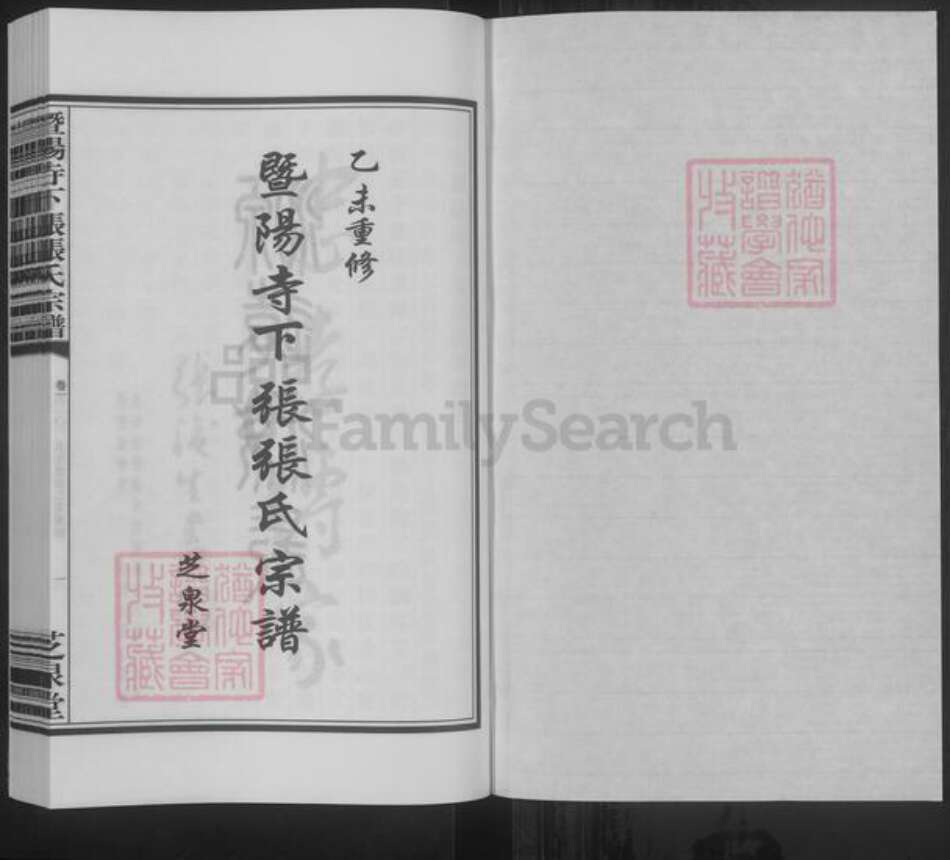 猶他家
譜學會
收藏
乙未重修
暨陽寺下張張氏宗譜
芝泉堂
猶他家
譜學會
收藏
暨陽寺下張張氏宗譜
卷一
芝泉堂
FamilySearch